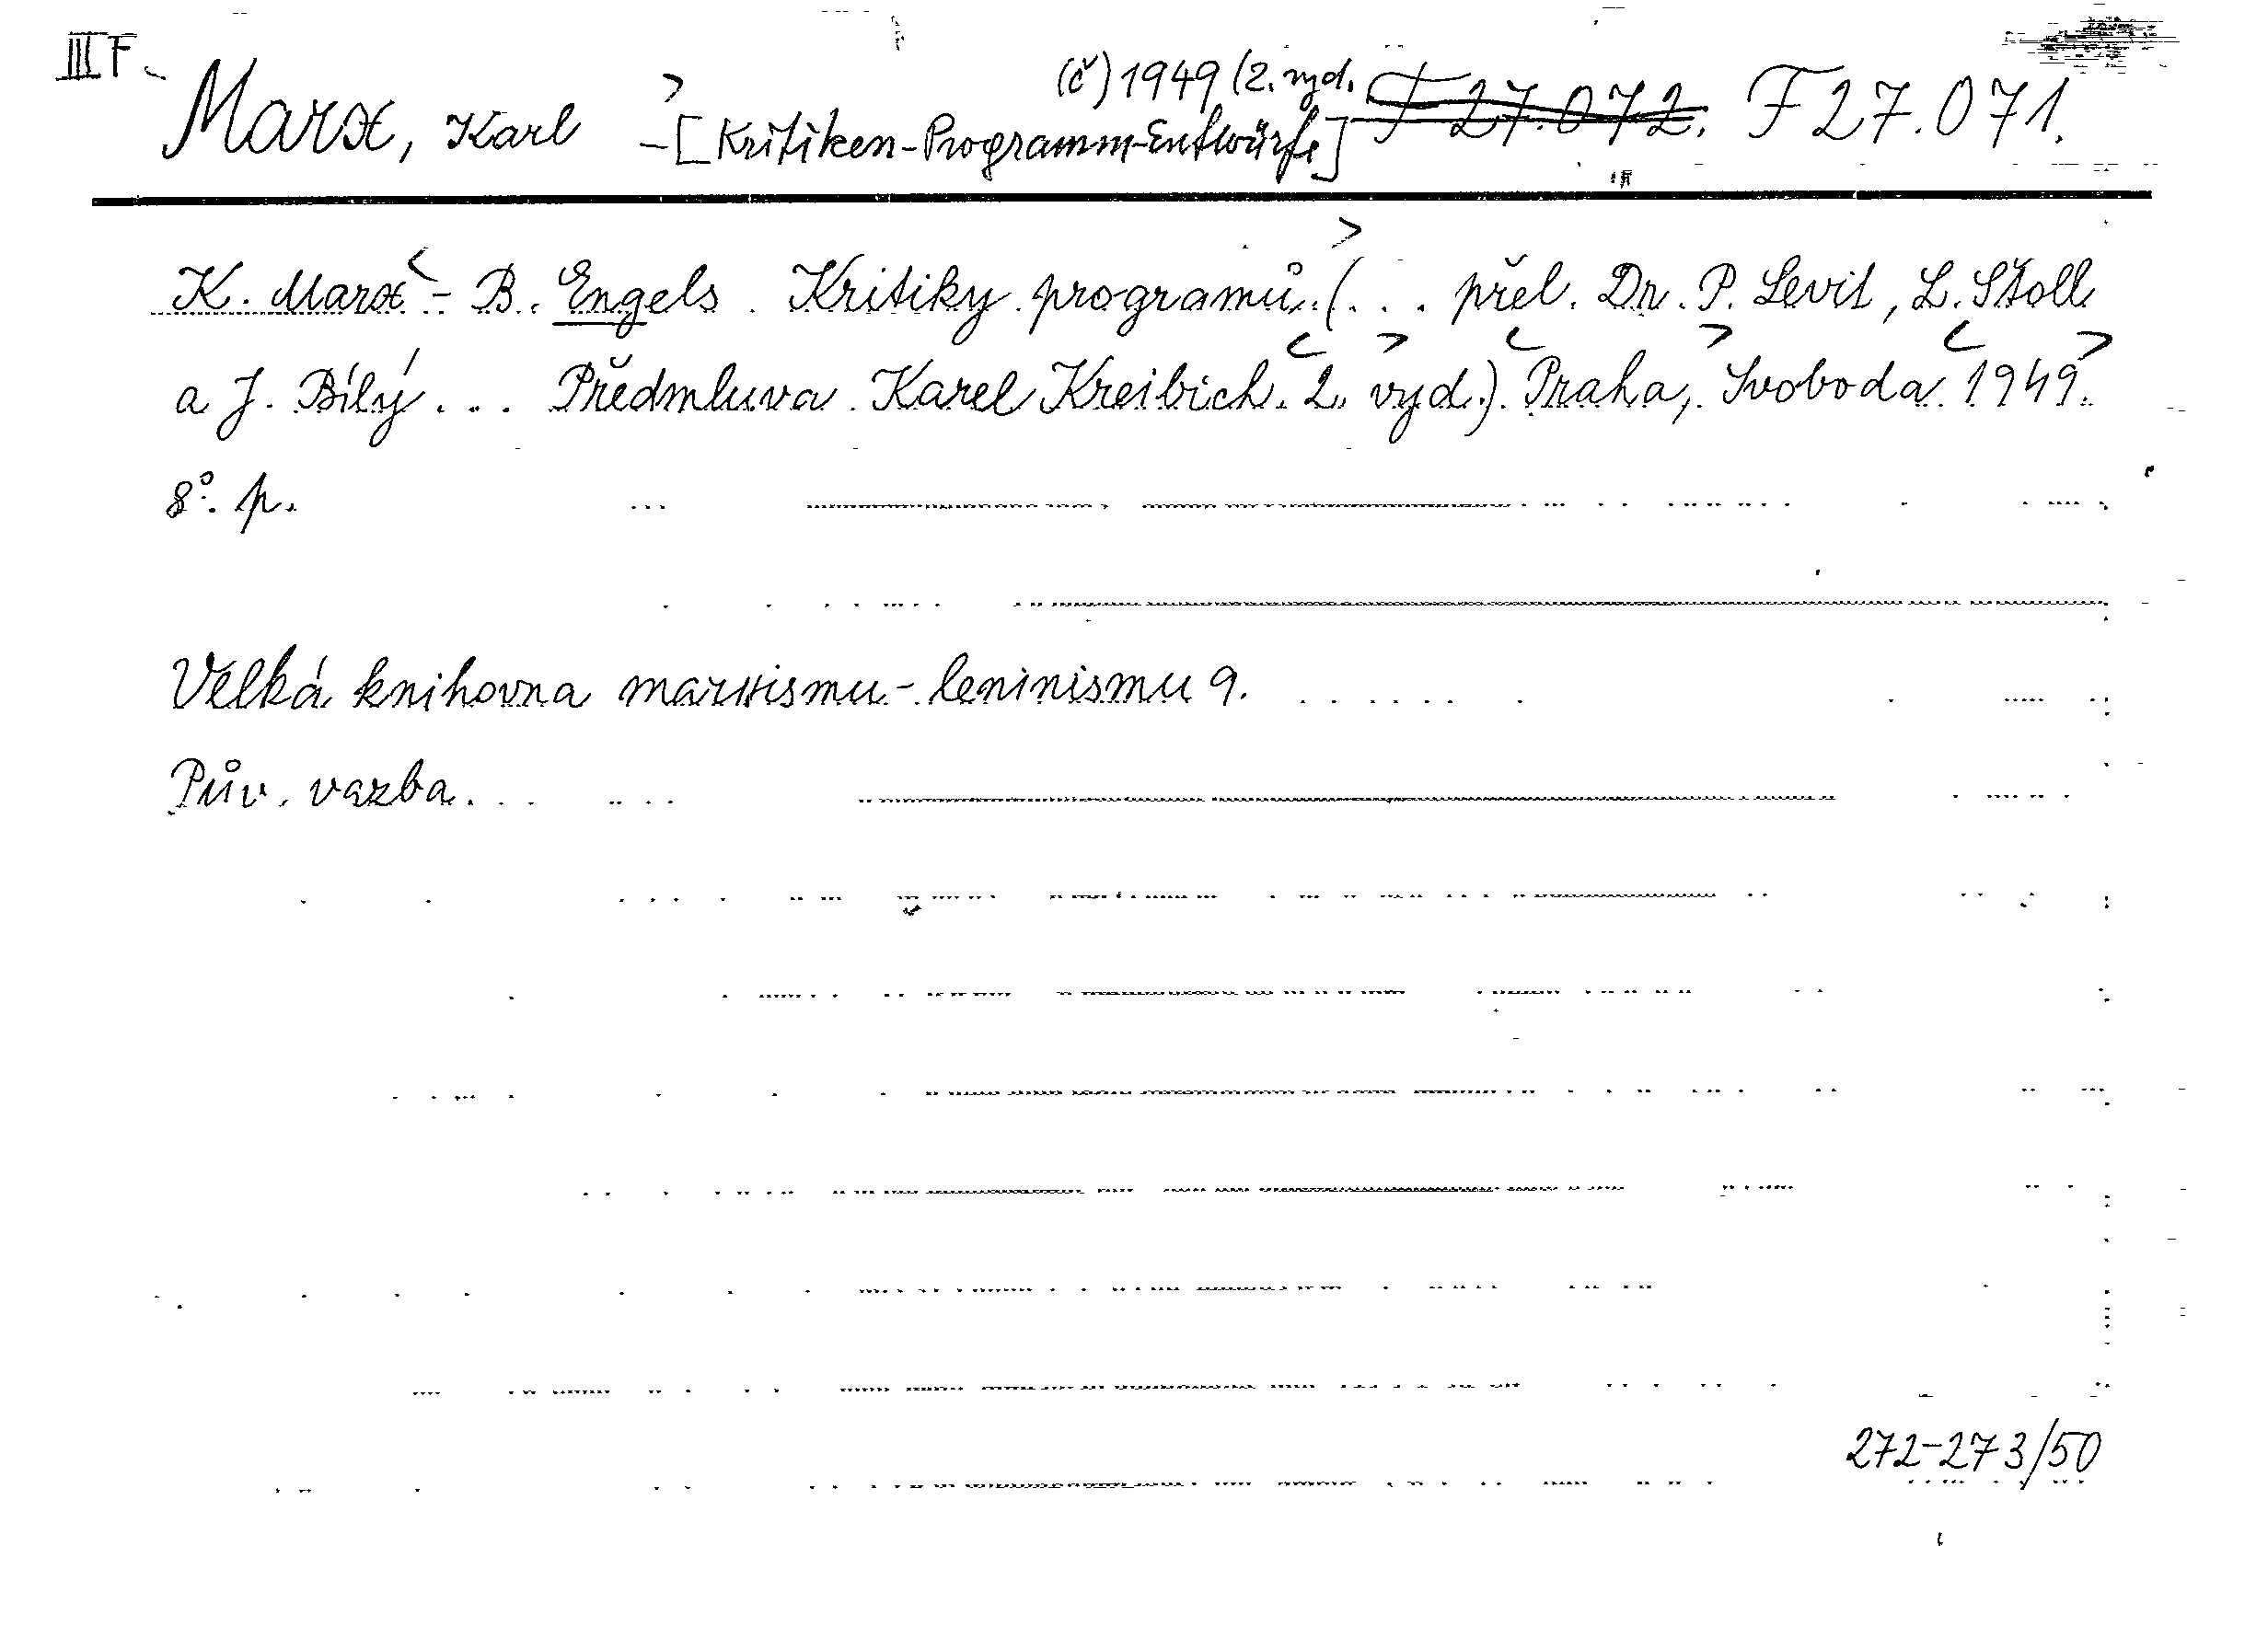 III F.
(č) 1949 (2. vyd.
Marx, Karl - [Kritiken-Programm-Entwürfe] F 27.072. F 27.071.
K. Marx - B. Engels. Kritiky programů. (... přel. Dr. P. Levit, L. Štoll
a J. Bílý... Předmluva Karel Kreibich. 2. vyd.) Praha, Svoboda 1949.
8°. p.
Velká knihovna marxismu-leninismu 9.
Pův. vazba.
272-273/50